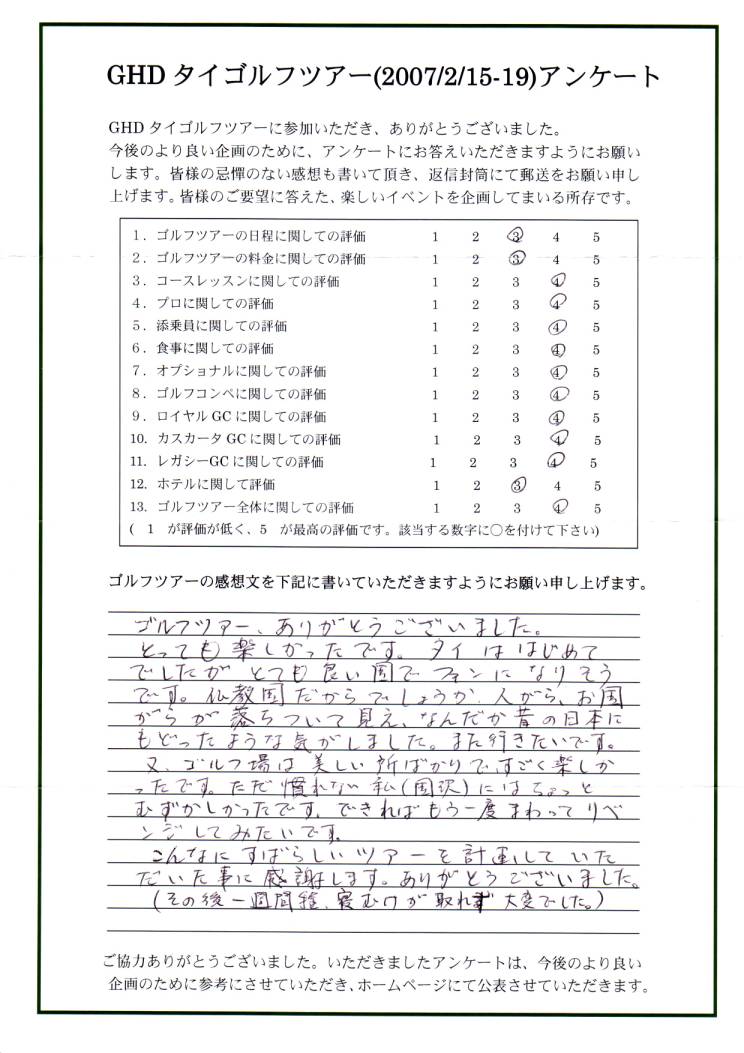 GHD タイゴルフツアー(2007/2/15-19)アンケート
GHD タイゴルフツアーに参加いただき、ありがとうございました。
今後のより良い企画のために、アンケートにお答えいただきますようにお願い
します。皆様の忌憚のない感想も書いて頂き、返信封筒にて郵送をお願い申し
上げます。皆様のご要望に答えた、楽しいイベントを企画してまいる所存です。
1．ゴルフツアーの日程に関しての評価 1 2 3 4 5
2．ゴルフツアーの料金に関しての評価 1 2 3 4 5
3．コースレッスンに関しての評価 1 2 3 4 5
4．プロに関しての評価 1 2 3 4 5
5．添乗員に関しての評価 1 2 3 4 5
6．食事に関しての評価 1 2 3 4 5
7．オプショナルに関しての評価 1 2 3 4 5
8．ゴルフコンペに関しての評価 1 2 3 4 5
9．ロイヤル GC に関しての評価 1 2 3 4 5
10．カスカータ GC に関しての評価 1 2 3 4 5
11．レガシーGC に関しての評価 1 2 3 4 5
12．ホテルに関して評価 1 2 3 4 5
13．ゴルフツアー全体に関しての評価 1 2 3 4 5
( 1 が評価が低く、5 が最高の評価です。該当する数字に○を付けて下さい)
ゴルフツアーの感想文を下記に書いていただきますようにお願い申し上げます。
ゴルフツアー、ありがとうございました。
とっても楽しかったです。タイははじめて
でしたが とても良い国でファンになりそう
です。仏教国だからでしょうか、人がら、お国
がらが落ちついて見え、なんだか昔の日本に
もどったような気がしました。また行きたいです。
又、ゴルフ場は美しい所ばかりで、すごく楽しか
ったです。ただ慣れない私(国沢)にはちょっと
むずかしかったです。できればもう一度まわってリベ
ンジしてみたいです。
こんなにすばらしいツアーを計画していた
だいた事に感謝します。ありがとうございました。
(その後一週間程、寝むけが取れず大変でした。)
ご協力ありがとうございました。いただきましたアンケートは、今後のより良い
企画のために参考にさせていただき、ホームページにて公表させていただきます。